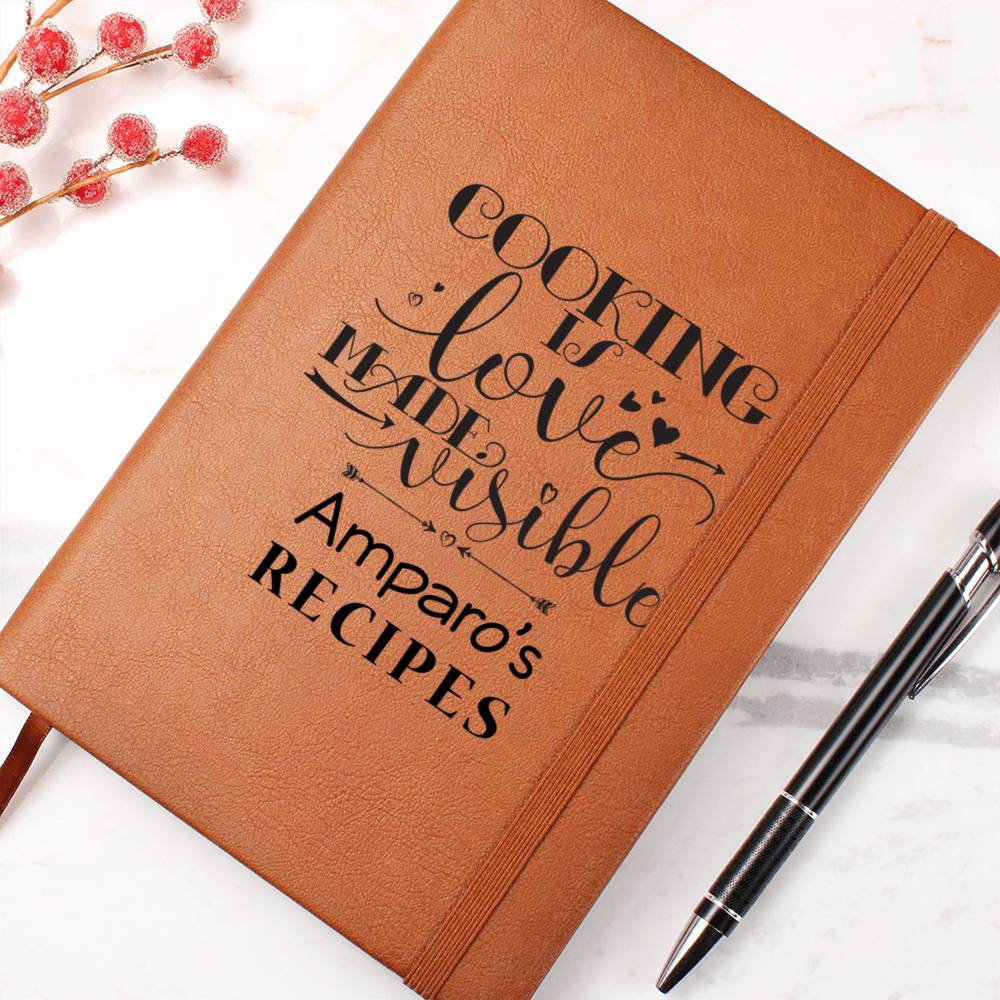 COOKING
IS
love
MADE
visible
Amparo's
RECIPES